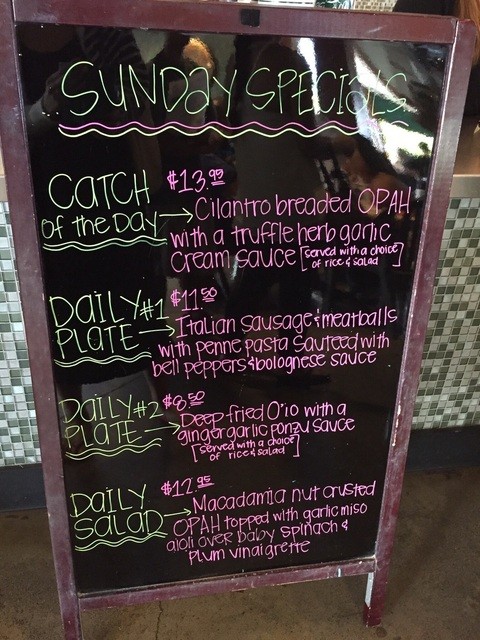 SUNDAY SPECIALS
CATCH $13.95
of the Day → Cilantro breaded OPAH
with a truffle herb garlic
cream sauce [served with a choice
of rice & salad]
DAILY #1 $11.50
PLATE → Italian Sausage & meatballs
with penne pasta Sauteed with
bell peppers & bolognese sauce
DAILY #2 $8.50
PLATE → Deep fried O'io with a
ginger garlic ponzu sauce
[served with a choice
of rice & salad]
DAILY $12.95
SALAD → Macadamia nut crusted
OPAH topped with garlic miso
aioli over baby spinach &
plum vinaigrette